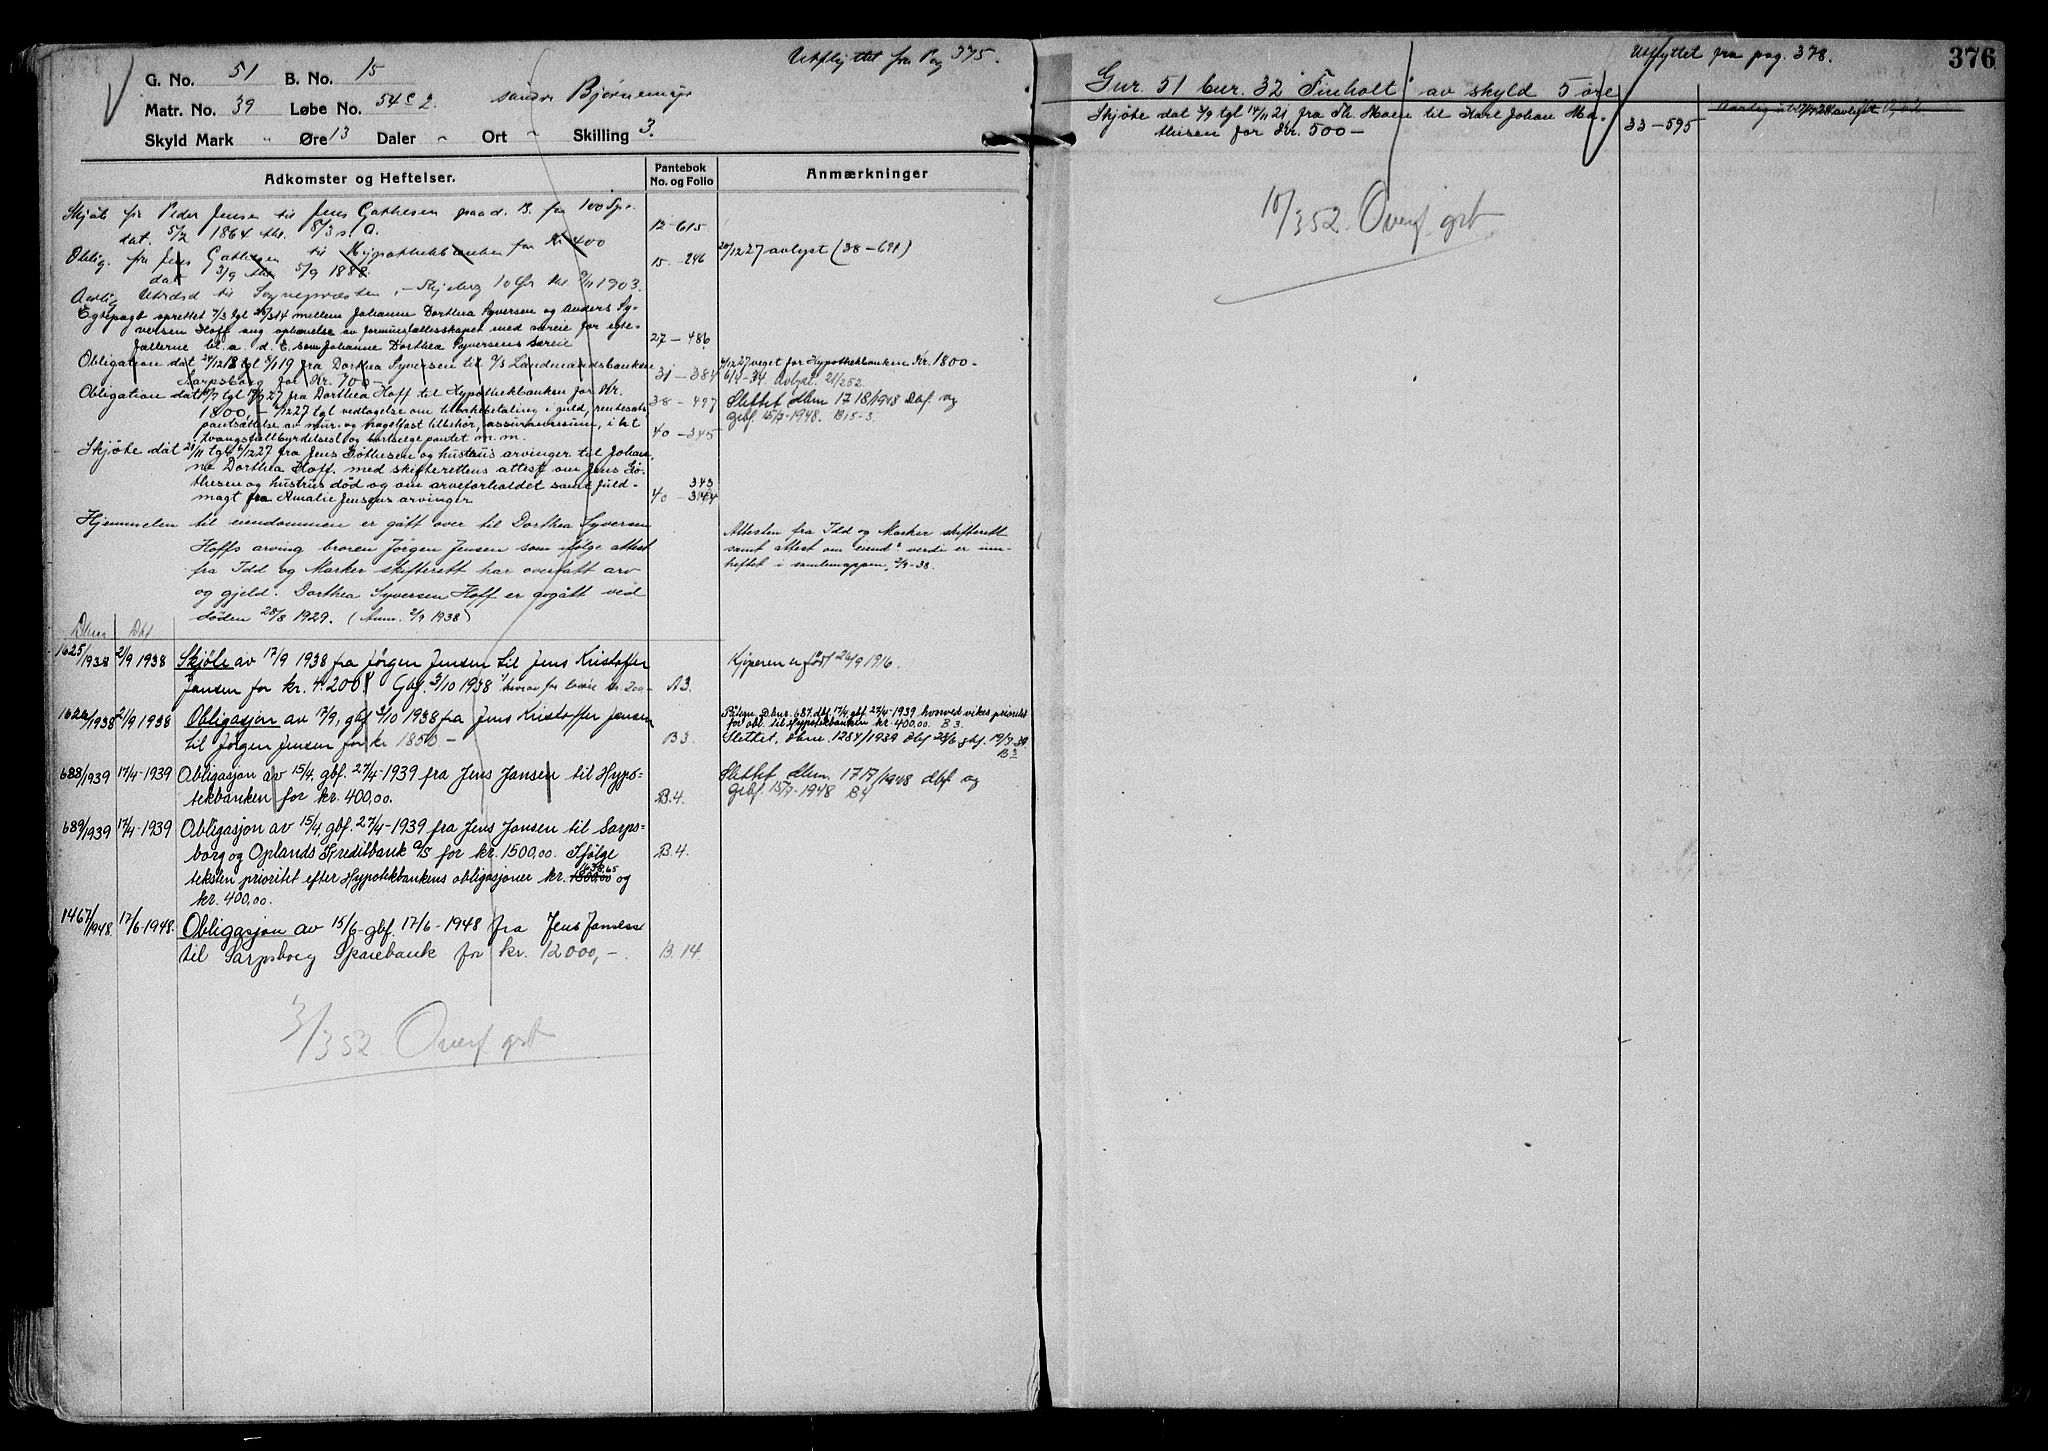 Utflyttet fra Pag 375.
G. No. 51 B. No. 15
Matr. No. 39 Løbe No. 54 c 2. søndre Bjørnemyr
Skyld Mark " Øre 13 Daler " Ort " Skilling 3.
Adkomster og Heftelser. Pantebok No. og Folio Anmærkninger
Skjøte fra Peder Jensen til Jens Gathesen paa d. B. for 100 Spd.
dat. 5/2 1864 thl. 8/3 s. A. 12-615
Oblig. fra Jens Gathesen til Hypothekbanken for Kr 400
dat 3/9 thl 5/9 1888 15-246 20/12 27 avlyst (38-691)
Aarlig Utrdsd til Sognepræsten, Skjeberg 10 Øre thl. 1903.
Egtepagt oprettet 7/3 tgl 20/3 14 mellem Johanne Dorthea Syversen og Anders Sy-
versen Hoff ang ophævelse av formuesfællesskapet med særeie for egte-
fællerne bl. a. d. E. som Johanne Dorthea Syversens særeie 27-486
Obligation dat 24/12 18 tgl 8/1 19 fra Dorthea Syversen til A/S Landmandsbanken
Sarpsborg for Kr. 700- 31-384 6/12 27 veget for Hypothekbanken Kr. 1800-
6/4-34. Avlyst. 21/252.
Obligation dat 6/7 tgl 19/7 27 fra Dorthea Hoff til Hypothekbanken for Kr.
1800,- 6/12 27 tgl vedtagelse om tilbakebetaling i guld, rentesats,
pantsættelse av mur- og nagelfast tilbehør, assuransesum, i tilf
tvangsfuldbyrdelsesl og bortsælge pantet m. m. 38-497
40-345 Slettet dbnr 1718/1948 Dbf og
gbf. 15/7-1948. B15-3.
Skjøte dat 28/11 tgl 6/12 27 fra Jens Gøthesen og hustrus arvinger til Johan-
ne Dorthea Hoff. med skifterettens attest om Jens Gø-
thesen og hustrus død og om arveforholdet samt fuld-
magt fra Amalie Jensens arvinger 40-343 344
Hjemmelen til eiendommen er gått over til Dorthea Syversen
Hoffs arving broren Jørgen Jensen som ifølge attest
fra Idd og Marker skifterett har overtatt arv
og gjeld. Dorthea Syversen Hoff er avgått ved
døden 28/8 1929. (Anm. 2/9 1938)
Attesten fra Idd og Marker skifterett
samt attest om eiend.s verdi er inn-
heftet i samlemappen, 2/9-38.
Dbnr Dbf
1625/1938 21/9 1938 Skjøte av 17/9 1938 fra Jørgen Jensen til Jens Kristoffer
Jansen for kr. 4.200. Gbf. 3/10 1938 hvorav for løsøre kr. 200,- A3. Kjøperen er født 26/9 1916.
1626/1938 21/9 1938 Obligasjon av 17/9, gbf 3/10 1938 fra Jens Kristoffer Jansen
til Jørgen Jensen for kr 1850- B3 Påtegn. Dbnr. 687. dbf. 17/4 gbf. 27/4-1939 hvorved vikes prioritet
for obl. til Hypotekbanken kr. 400,00. B 3.
Slettet, dbnr. 1284/1939 dbf 28/6 gbf. 19/7 39. B3
688/1939 17/4-1939 Obligasjon av 15/4, gbf. 27/4-1939 fra Jens Jansen til Hypo=
tekbanken for kr. 400,00. B.4. Slettet dbnr. 1717/1948 dbf og
grbf. 15/7-1948 B4
689/1939 17/4-1939 Obligasjon av 15/4, gbf. 27/4-1939 fra Jens Jansen til Sarps=
borg og Oplands Kreditbank A/S for kr. 1500,00. Ifølge B.4.
teksten prioritet efter Hypotekbankens obligasjoner kr. 1800,00 og
kr. 400,00.
1467/1948 17/6-1948. Obligasjon av 15/6-gbf. 17/6-1948 fra Jens Jansen
til Sarpsborg Sparebank for kr. 12000,-. B. 14.
3/352. Overf grb
Utflyttet fra pag. 378.
376
Gnr. 51 bnr. 32 "Finholt" av skyld 5 øre
Skjøte dat 3/9 tgl 14/11 21 fra Th. Moen til Karl Johan Ma-
thisen for Kr. 500- 33-595
10/352. Overf. grb